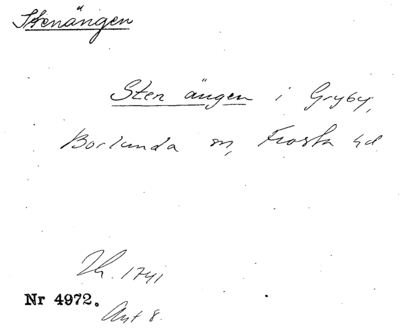 Stenängen
Sten ängen i Gryby,
Borlunda sn, Frosta hd
Lh. 1741
Nr 4972.
Akt 8.